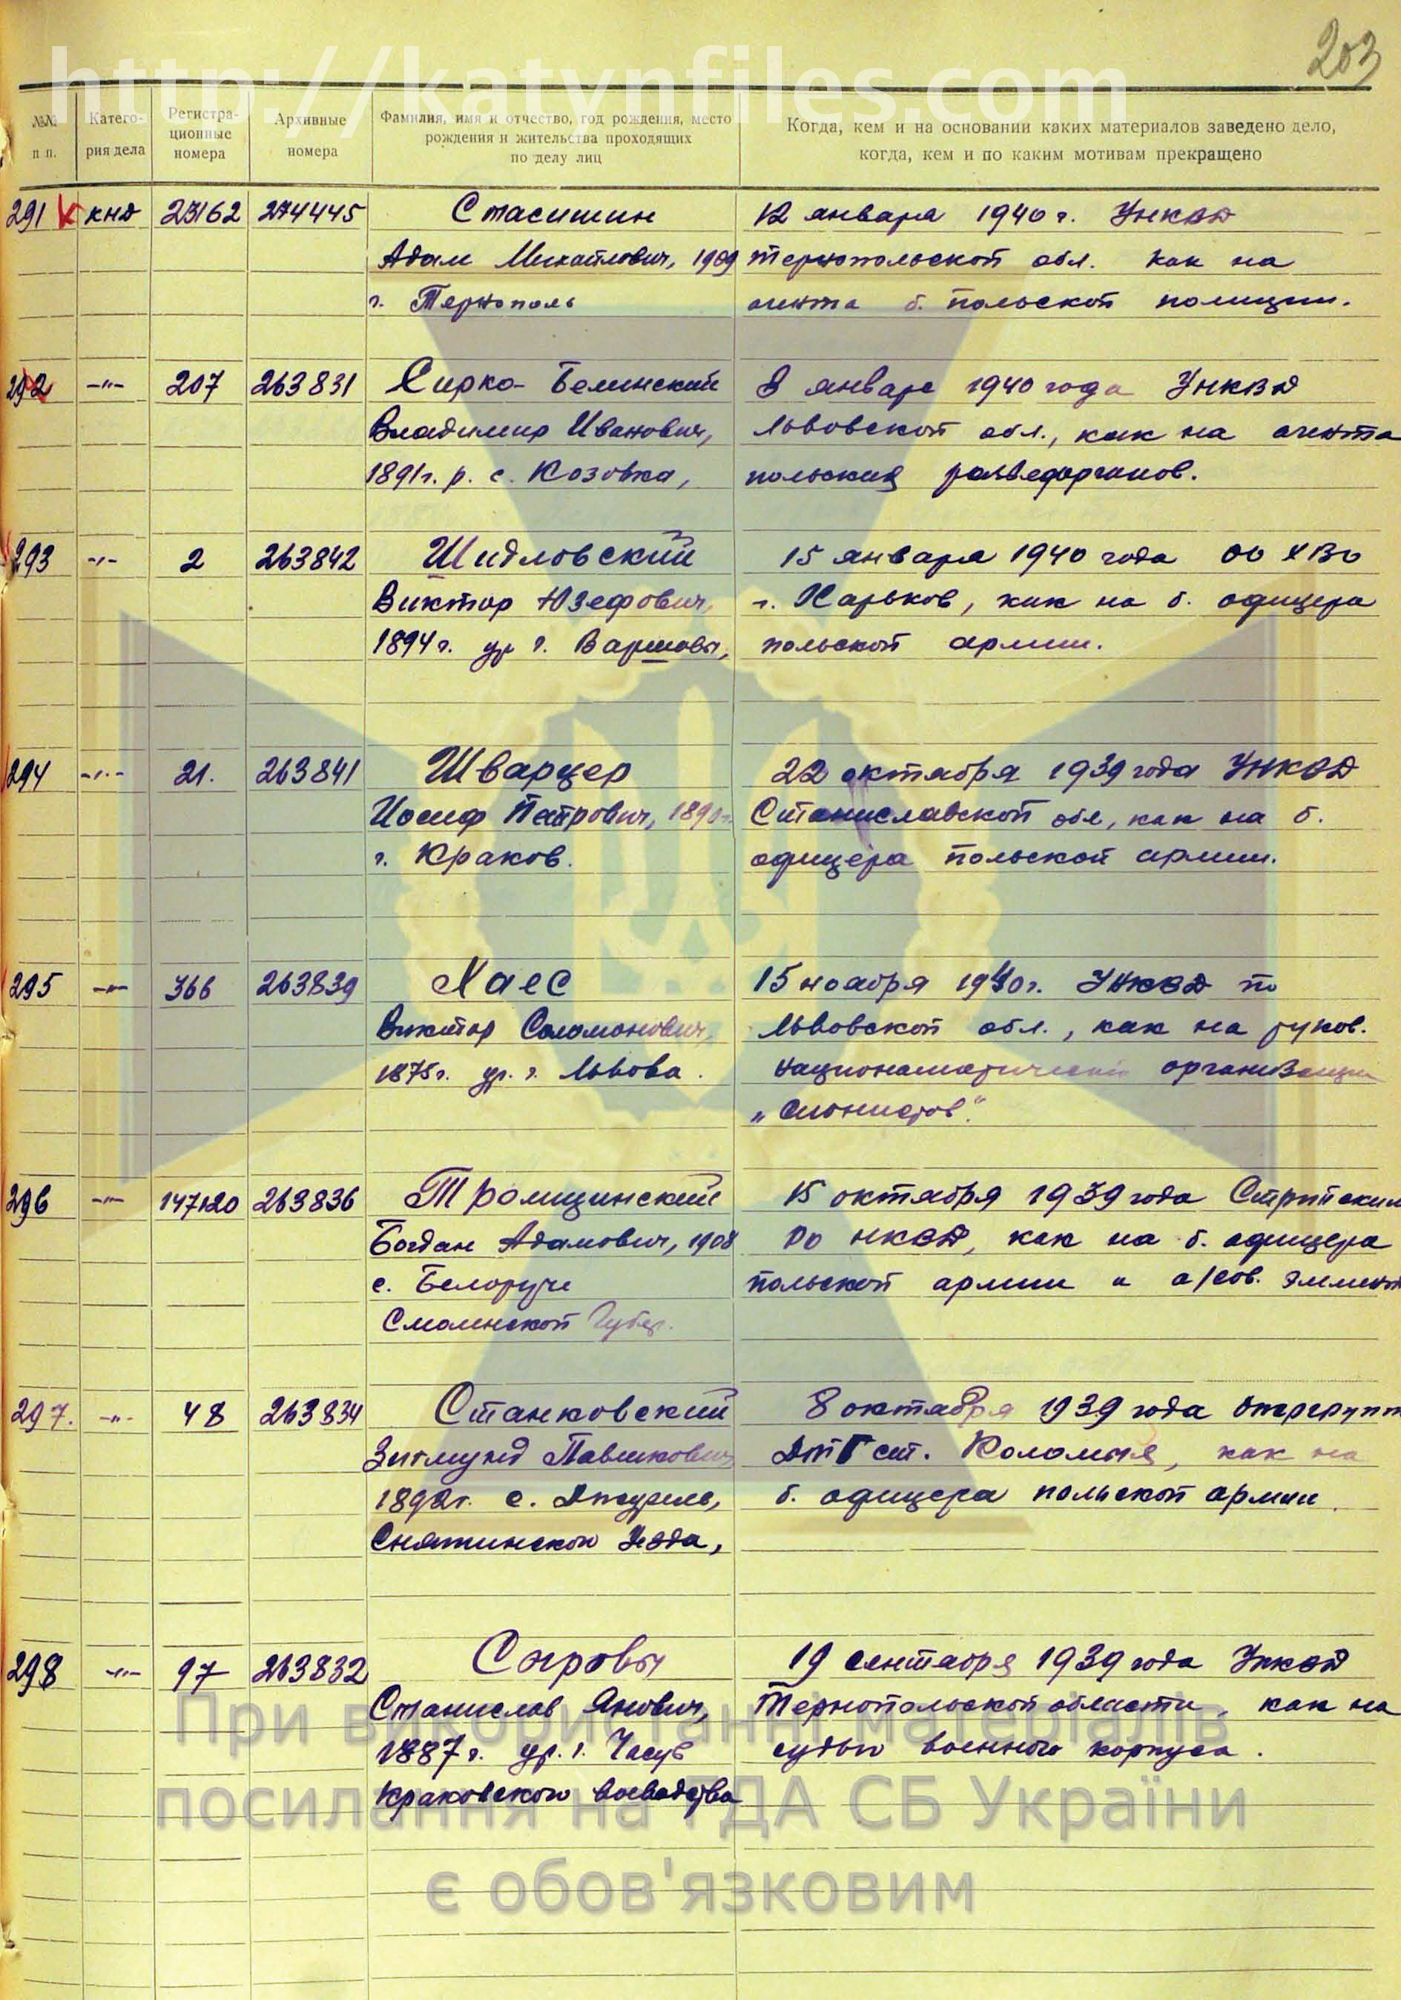 http://katynfiles.com
203
№№ п п.
Катего- рия дела
Регистра- ционные номера
Архивные номера
Фамилия, имя и отчество, год рождения, место рождения и жительства проходящих по делу лиц
Когда, кем и на основании каких материалов заведено дело, когда, кем и по каким мотивам прекращено
291 КНД 23162 274445 Стасишин 12 января 1940 г. УНКВД
Адам Михайлович, 1909 Тернопольской обл. как на
г. Тернополь агента б. польской полиции.
292 -"- 207 263831 Сирко-Белинский В январе 1940 года УНКВД
Владимир Иванович, Львовской обл., как на агента
1891 г. р. с. Козовка, польских разведорганов.
293 -"- 2 263842 Шидловский 15 января 1940 года ОО ХВО
Виктор Юзефович, г. Харьков, как на б. офицера
1894 г. ур г. Варшавы, польской армии.
294 -"- 21. 263841 Шварцер 22 октября 1939 года УНКВД
Иосиф Петрович, 1890 г. Станиславской обл, как на б.
г. Краков. офицера польской армии.
295 -"- 366 263839 Хаес 15 ноября 1940 г. УНКВД по
Виктор Соломонович, Львовской обл., как на руков.
1875 г. ур. г. Львова. националистической организации
„Сионистов".
296 -"- 147120 263836 Тромщинский 15 октября 1939 года Стрийским
Богдан Адамович, 1908 РО НКВД, как на б. офицера
с. Белоручи польской армии и а/сов. элемент
Смоленской Губер.
297. -"- 48 263834 Станковский 8 октября 1939 года опергрупп
Зигмунд Павликович ДТГ ст. Коломыя, как на
1892 г. с. Джурив, б. офицера польской армии.
Снятинского Уезда,
298 -"- 97 263832 Сыровы 19 сентября 1939 года УНКВД
Станислав Янович, Тернопольской области, как на
1887 г. ур. г. судью военного корпуса.
Краковского воеводства
При використанні матеріалів
посилання на ГДА СБ України
є обов'язковим